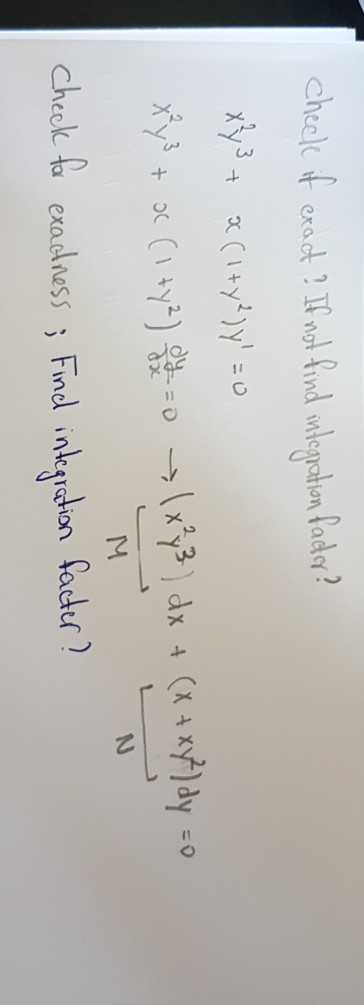 Check if exact? If not find integration factor?
x²y³ + x(1+y²)y' = 0
x²y³ + x(1+y²) dy/dx = 0 → (x²y³)dx + (x + xy²)dy = 0
M N
Check for exactness ; Find integration facter?